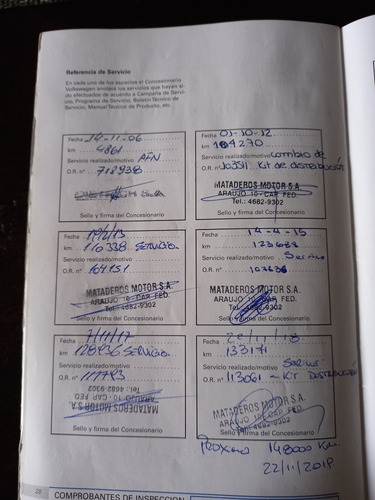 Referencia de Servicio
En cada uno de los espacios el Concesionario
Volkswagen anotará los servicios que hayan si-
do efectuados de acuerdo a Campaña de Servi-
cio, Programa de Servicio, Boletín Técnico de
Servicio, Manual Técnico de Producto, etc.
Fecha 14-11-06
km 4861
Servicio realizado/motivo
O.R. nº 712938
Sello y firma del Concesionario
Fecha 03-10-12
km 104270
Servicio realizado/motivo Cambio de
O.R. nº Kit de distribución
MATADEROS MOTOR S.A.
ARAUJO 10 - CAP. FED.
Tel.: 4682-9302
Sello y firma del Concesionario
Fecha
km 110338 Servicio
Servicio realizado/motivo
O.R. nº
MATADEROS MOTOR S.A.
ARAUJO 10 - CAP. FED.
Tel.: 4682-9302
Sello y firma del Concesionario
Fecha 14-4-15
km
Servicio realizado/motivo Servicio
O.R. nº
MATADEROS MOTOR S.A.
ARAUJO 10 - CAP. FED.
4682-9302
Sello y firma del Concesionario
Fecha 7/11/17
km 128936 Servicio
Servicio realizado/motivo
O.R. nº
MATADEROS MOTOR S.A.
ARAUJO 10 - CAP. FED.
Tel.: 4682-9302
Sello y firma del Concesionario
Fecha
km 133171
Servicio realizado/motivo
O.R. nº 113061 - Kit Distribución
MATADEROS MOTOR S.A.
ARAUJO 10 - CAP. FED.
Tel.: 4682-9302
Sello y firma del Concesionario
PROXIMO 148000 Km.
22/11/2019
28
COMPROBANTES DE INSPECCION